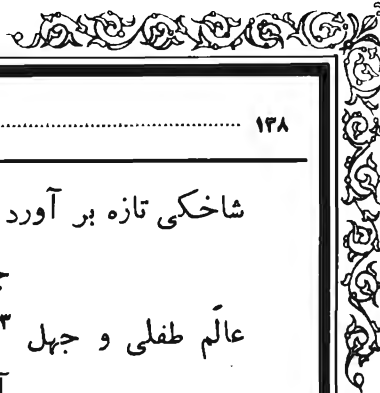 ۱۳۸ ........................................
شاخکی تازه بر آورد
عالَم طفلی و جهل ۳